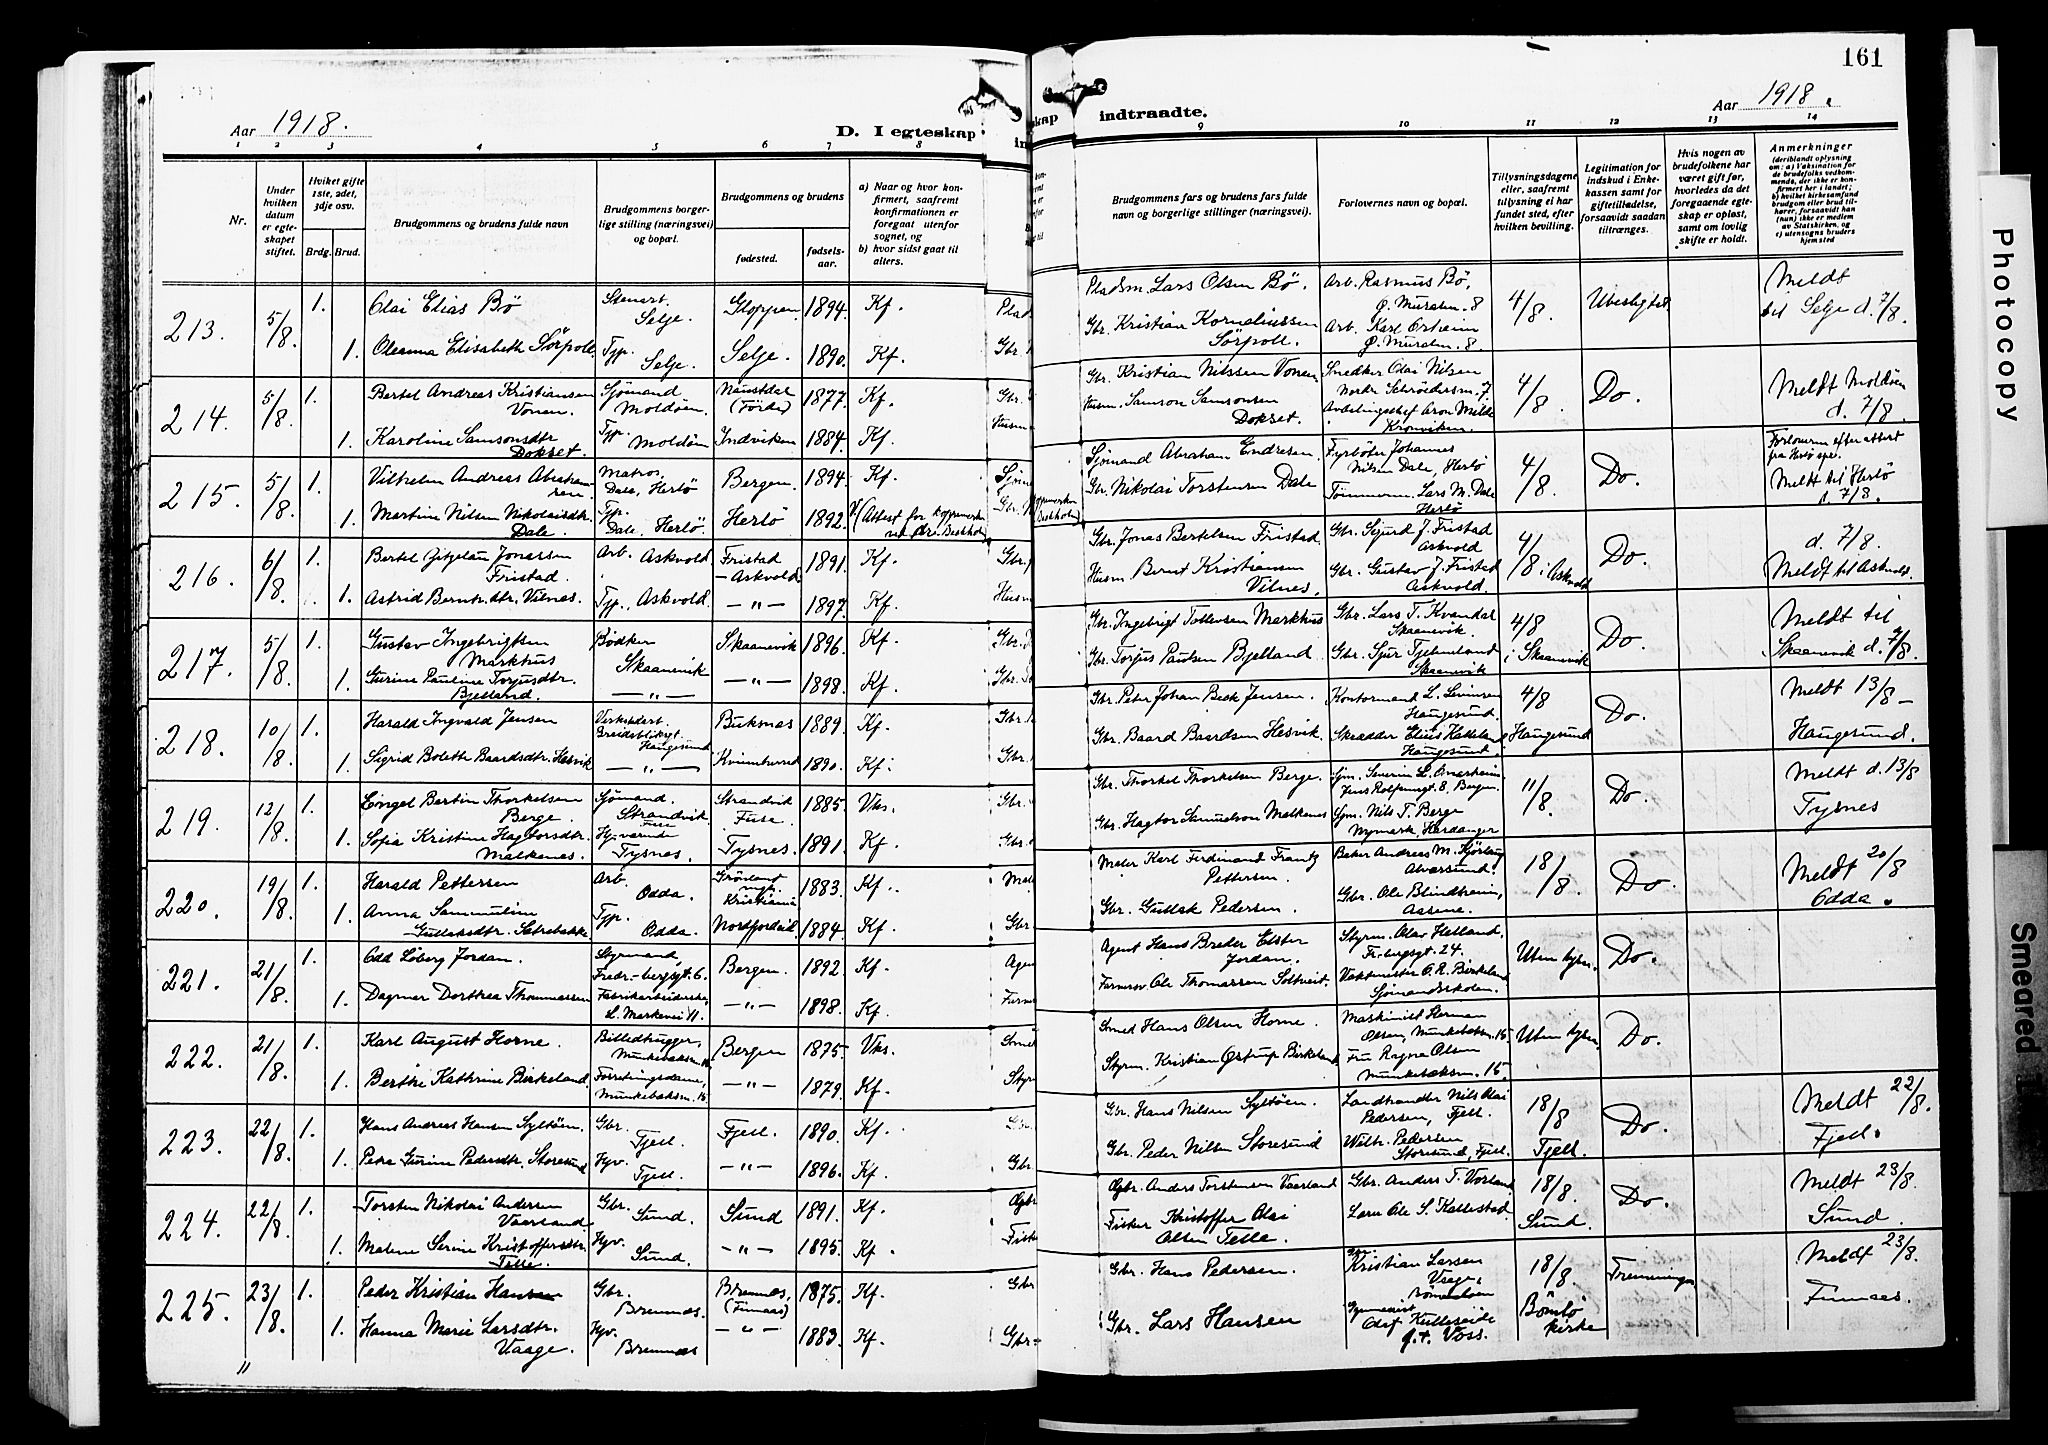 161
Aar 1918.
D. I egteskap
indtraadte.
Aar 1918.
1 2 3 4 5 6 7 8
9 10 11 12 13 14
Nr.
Under hvilken datum er egteskapet stiftet.
Hviket gifte 1ste, 2det, 3dje osv.
Brdg. Brud.
Brudgommens og brudens fulde navn
Brudgommens borgerlige stilling (næringsvei) og bopæl.
Brudgommens og brudens
fødested.
fødselsaar.
a) Naar og hvor konfirmert, saafremt konfirmationen er foregaat utenfor sognet, og
b) hvor sidst gaat til alters.
Brudgommens fars og brudens fars fulde navn og borgerlige stillinger (næringsvei).
Forlovernes navn og bopæl.
Tillysningsdagene eller, saafremt tillysning ei har fundet sted, efter hvilken bevilling.
Legitimation for indskud i Enkekassen samt for giftetilladelse, forsaavidt saadan tiltrænges.
Hvis nogen av brudefolkene har været gift før, hvorledes da det foregaaende egteskap er opløst, samt om lovlig skifte er holdt.
Anmerkninger
(deriblandt oplysning om: a) Vaksination for de brudefolks vedkommende, der ikke er konfirmert her i landet; b) hvilket kirkesamfund brudgom eller brud tilhører, forsaavidt han (hun) ikke er medlem av Statskirken, og c) utensogns bruders hjemsted
213. 5/8. 1. Olai Elias Bö Stenarb. Selje. Gloppen 1894. Kf. Pladsm. Lars Olsen Bö. Arb. Rasmus Bö, Ø. Muralm. 8 4/8. Ubesligtet Meldt til Selje d. 7/8.
1. Oleanna Elisabeth Sörpoll. Typ. Selje. Selje. 1890. Kf. Gbr. Kristian Korneliussen Sörpoll. Arb. Karl Ø. Muralm. 8.
214. 5/8. 1. Bertel Andreas Kristiansen Vonen. Sjømand Moldøen. Naustdal (Förde) 1877. Kf. Gbr. Kristian Nilssen Vonen Snedker Olai Nilsen Nedr. 7. 4/8. Do. Meldt Moldøen d. 7/8.
1. Karoline Samsonsdtr. Dokset. Typ. Moldøen Indviken 1884. Kf. Husm. Samson Samsonsen Dokset. Aron Milde Kronviken.
215. 5/8. 1. Vilhelm Andreas Matros, Dale, Herlö Bergen. 1894. Kf. Sjømand Abraham Endresen. Fyrböter Johannes Nilsen Dale, Herlö 4/8. Do. Meldt til Herlö d. 7/8.
1. Martine Nilsen Nikolaisdtr. Dale. Typ. Dale, Herlö. Herlö 1892. Gbr. Nikolai Torstensen Dale Tömmerm. Lars M. Dale Herlö
216. 6/8. 1. Bertel Jonassen Fristad. Arb. Askvold. Fristad - Askvold. 1891. Kf. Gbr. Jonas Bertelsen Fristad. Gbr. Sjurd J. Fristad Askvold 4/8 i Askvold Do. d. 7/8. Meldt til Askvold.
1. Astrid Berntsdtr. Vilnes. Typ., Askvold. -"- 1897. Kf. Husm. Bernt Kristiansen Vilnes. Gbr. Gustav J. Fristad Askvold.
217. 5/8. 1. Gustav Ingebrigtsen Markhus Bødker Skaanevik Skaanevik 1896. Kf. Gbr. Ingebrigt Tollevsen Markhus Gbr. Lars T. Kvandal Skaanevik. 4/8 i Skaanevik Do. Meldt til Skaanevik d. 7/8.
1. Gurine Pauline Torjusdtr. Bjelland. -"- -"- 1898. Kf. Gbr. Torjus Paulsen Bjelland Gbr. Sjur Tjelmeland Skaanevik
218. 10/8. 1. Harald Ingvald Jensen Haugesund Buksnes 1889. Kf. Gbr. Peter Johan Beck Jensen. Kontormand L. Haugesund. 4/8 Haugesund Do. Meldt 13/8 - Haugesund.
1. Sigrid Bolette Baardsdtr. Hesvik -"- Kvinnherred 1890. Kf. Gbr. Baard Baardsen Hesvik. Skrædder Elias Haugesund
219. 12/8. 1. Engel Bertin Thorkelsen Berge. Sjömand. Strandvik Fuse Strandvik Fuse. 1885. Vks. Gbr. Thorkel Thorkelsen Berge. Sjm. Severin L. 8, Bergen. 11/8. Do. Meldt d. 13/8 Tysnes
1. Sofia Kristine Hagtorsdtr. Malkenes. Hj. værende Tysnes. Tysnes. 1891. Kf. Gbr. Hagtor Samuelson Malkenes Sjm. Nils T. Berge Nymark, Hardanger
220. 19/8. 1. Harald Pettersen Arb. Odda. Grönland Kristiania 1883. Kf. Maler Karl Ferdinand Frantz Pettersen. Baker Andreas M. Alversund. 18/8. Do. Meldt 20/8 Odda.
1. Anna Gullaksdtr. Sætrebakke Typ. Odda. Nordfjordeid. 1884. Kf. Gbr. Gullak Pedersen. Gbr. Ole Blindheim,
221. 21/8. 1. Odd Löberg Jordan. Styrmand, Fredr.-bergsgt. 6. Bergen. 1892. Kf. Agent Hans Breder Elster Jordan. Styrm. Olav Helland, Fr.bergsgt. 24. Do.
1. Dagmar Dorthea Thommassen Fabrikarbeiderske, L. Markevei 11. -"- 1898. Kf. Ole Thomassen Soltveit. Vaktmester O. R. Birkeland Sjømandsskolen.
222. 21/8. 1. Karl August Horne. Billedhugger, Munkebæksm. Bergen 1875. Vks. Smed Hans Olsen Horne. Maskinist Herman Olsen, Munkebæksm. 15. Do.
1. Berthe Kathrine Birkeland. Forretningsdame, Munkebæksm. 15 -"- 1879. Kf. Styrm. Kristian Østrup Birkeland Fru Ragna Olsen Munkebæksm. 15.
223. 22/8. 1. Hans Andreas Hansen Syltöen. Gbr. Fjell. Fjell. 1890. Kf. Gbr. Hans Nilsen Syltöen. Landhandler Nils Olai Pedersen, Fjell. 18/8 Fjell. Do. Meldt 22/8. Fjell.
1. Petra Gurine Pedersdtr. Storesund Hjv. Fjell. -"- 1896. Kf. Gbr. Peder Nilsen Storesund Wilh. Pedersen Storesund, Fjell.
224. 22/8. 1. Torsten Nikolai Andersen Vaarland. Gbr. Sund. Sund 1891. Kf. Gbr. Anders Torstensen Vaarland Gbr. Anders T. Vorland 18/8. Sund. Do. Meldt 23/8. Sund.
1. Malene Serine Kristoffersdtr. Telle. Hjv. Sund. -"- 1895. Kf. Fisker Kristoffer Olai Olsen Telle. Lærer Ole S. Kallestad.
225. 23/8. 1. Peder Kristian Hansen Gbr. Bremnes. Bremnes, (Finnaas) 1875. Kf. Gbr. Hans Pedersen. Kristian Larsen Vaage, 18/8. Bömlo kirke Meldt 23/8. Finnaas.
1. Hanna Marie Larsdtr. Vaage. Hjv. Bremnes -"- 1883. Kf. Gbr. Lars Hansen Gymnasist Olaf Kulleseide p.t. Voss.
Photocopy
Smeared